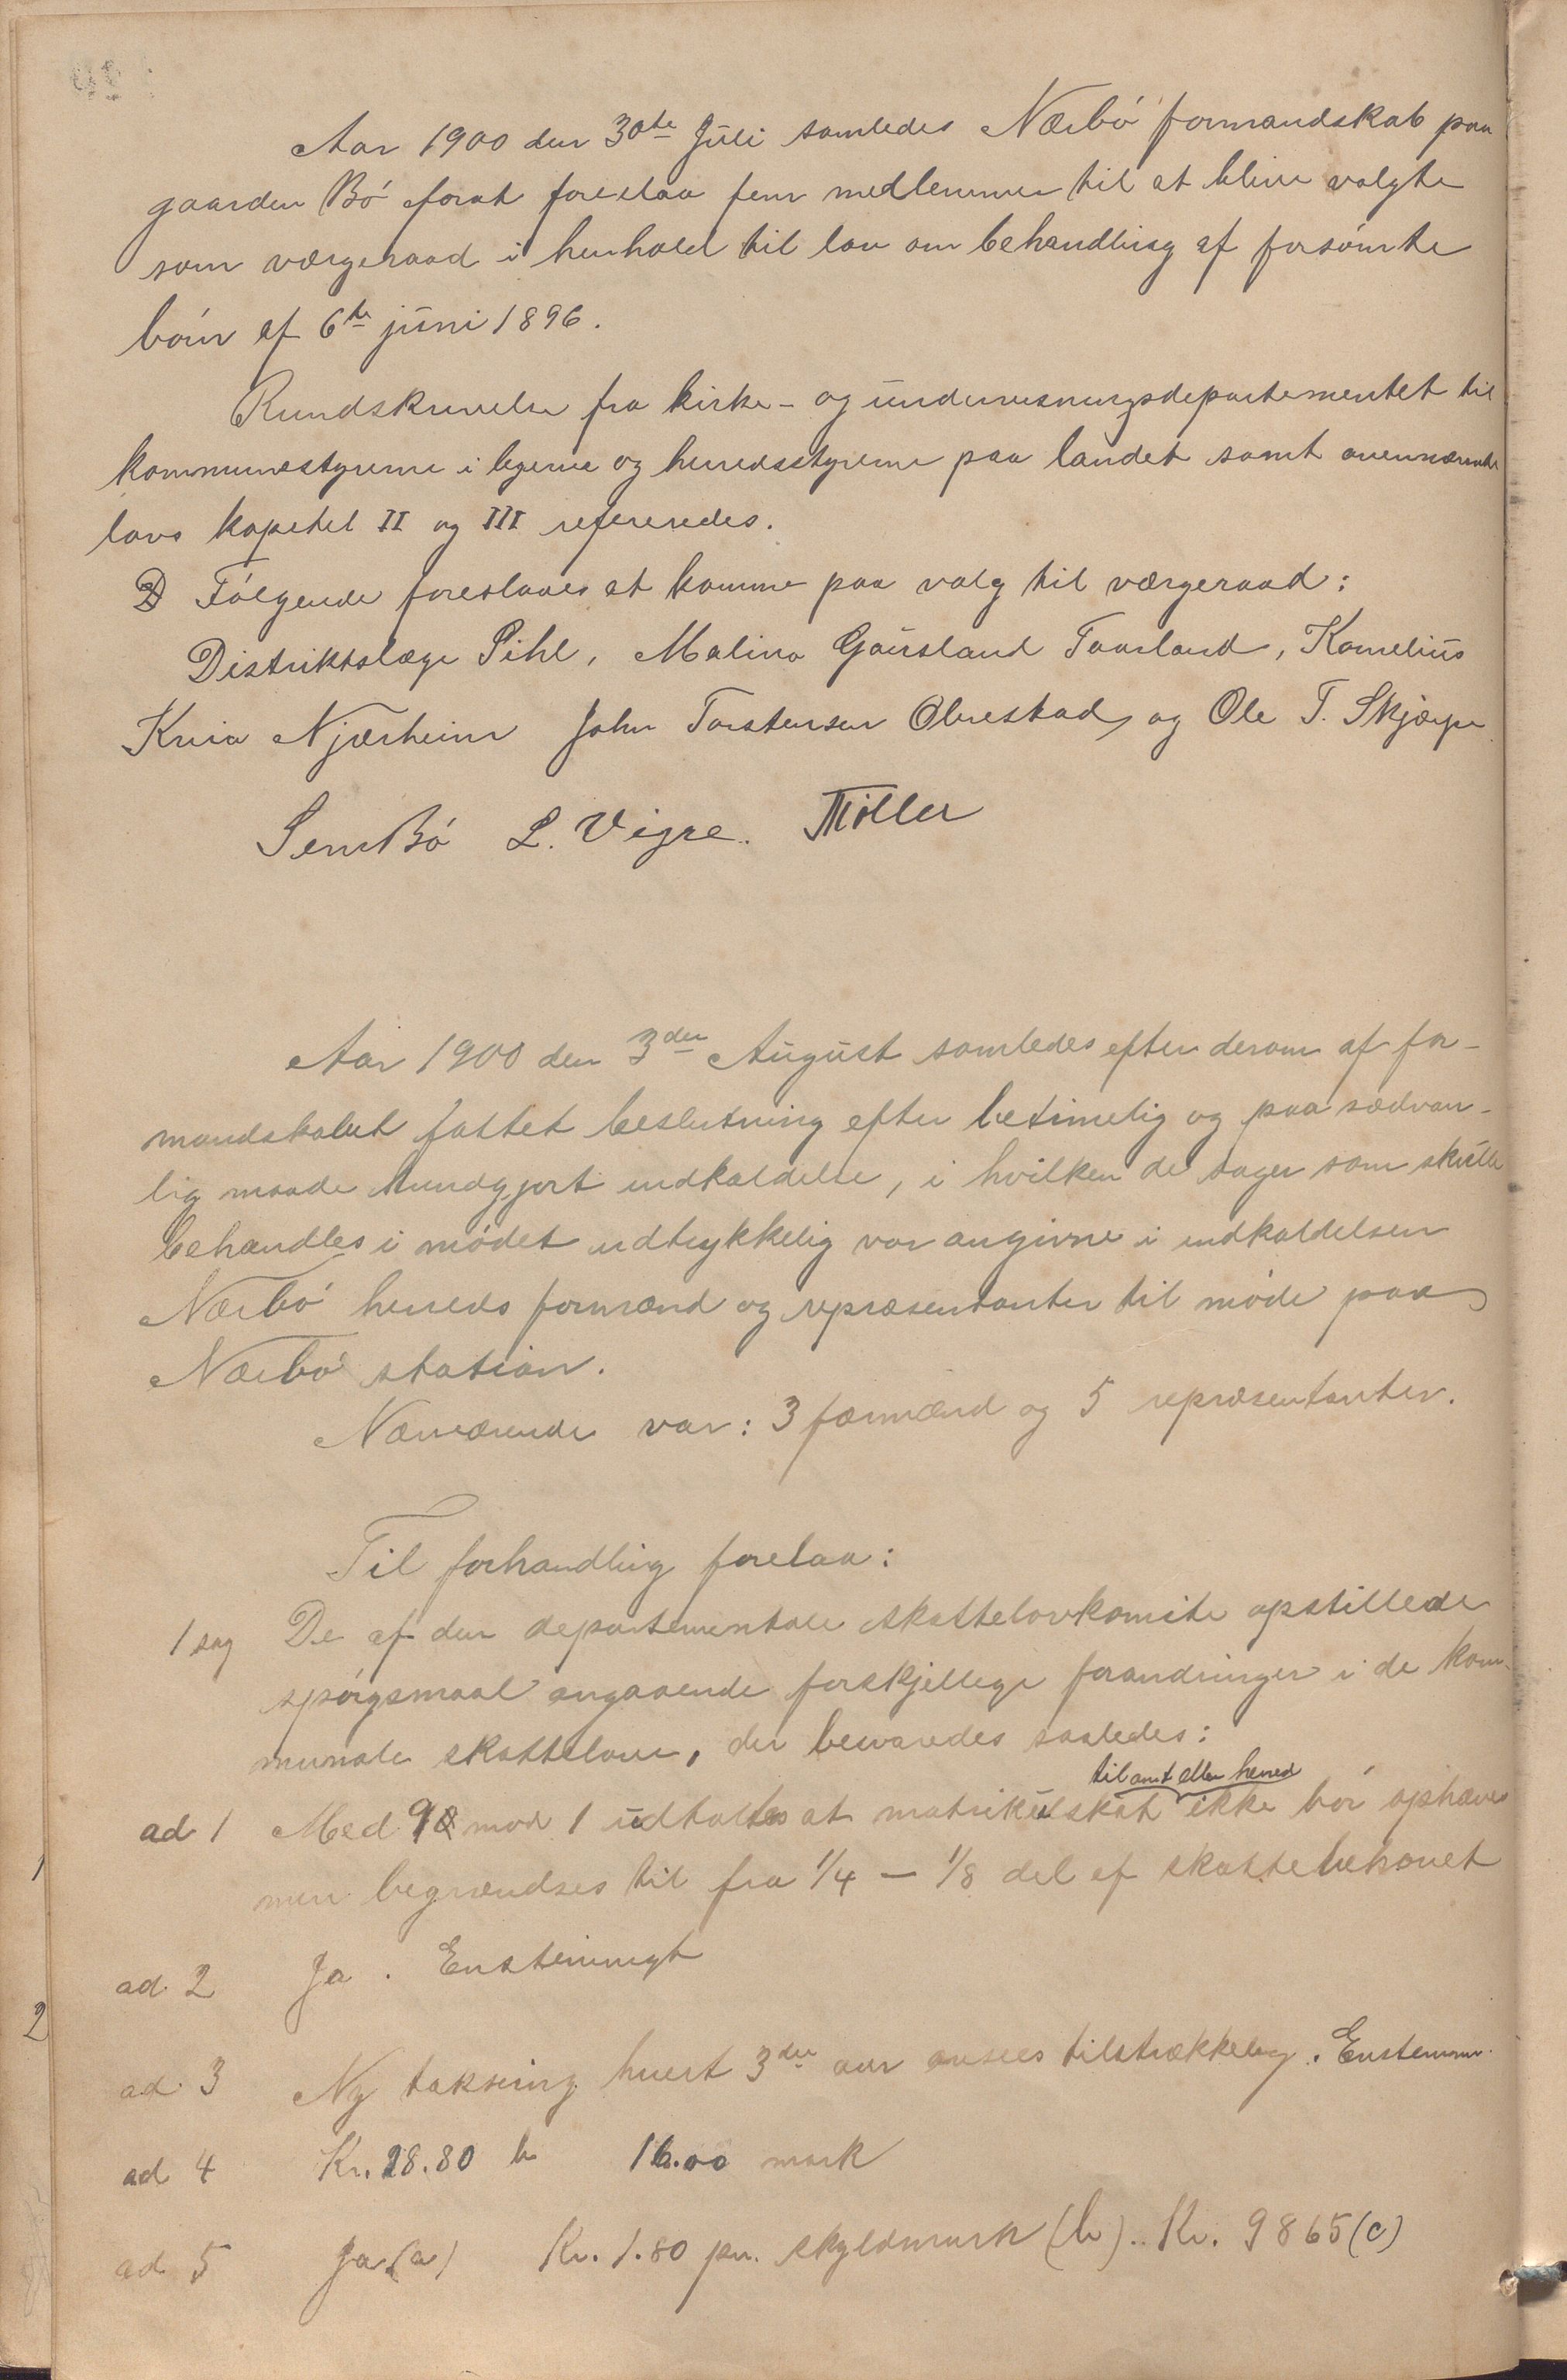 Aar 1900 den 30te Juli samledes Nærbø formandskab paa
gaarden Bø forat foreslaa fem medlemmer til at blive valgte
som værgeraad i henhold til lov om behandling af forsømte
børn af 6te juni 1896.
Rundskrivelse fra kirke- og undervisningsdepartementet til
kommunestyrerne i byerne og herredsstyrerne paa landet samt ovennævnte
lovs kapitel II og III refereredes.
Følgende foreslaaes at komme paa valg til værgeraad:
Distriktslæge Pihl, Malina Gausland Taarland, Kornelius
Knia Njærheim John Torstensen Obrestad, og Ole T. Skjærpe
Sem Bø L. Vigre. Møller
Aar 1900 den 3den August samledes efter derom af for-
mandskabet fattet beslutning efter betimelig og paa sædvan-
lig maade kundgjort indkaldelse, i hvilken de sager som skulle
behandles i mødet udtrykkelig var angivne i indkaldelsen
Nærbø herreds formænd og repræsentanter til møde paa
Nærbø station.
Nærværende var: 3 formænd og 5 repræsentanter.
Til forhandling forelaa:
1 sag De af den departementale skattelovkomite opstillede
spørgsmaal angaaende forskjellige forandringer i de kom-
munale skattelove, der besvaredes saaledes:
til amt eller herred
ad 1 Med 9 mod 1 udtaltes at matrikulskat ikke bør ophæves
1
men begrændses til fra 1/4 — 1/8 del af skattebehovet
ad 2 Ja. Enstemmigt
2
ad 3 Ny taksering hvert 3die aar ansees tilstrækkelig. Enstemm.
ad 4 Kr. 28.80 b 16.00 mark
ad 5 Ja (a) Kr. 1.80 pr. skyldmark (b).. Kr. 9865 (c)